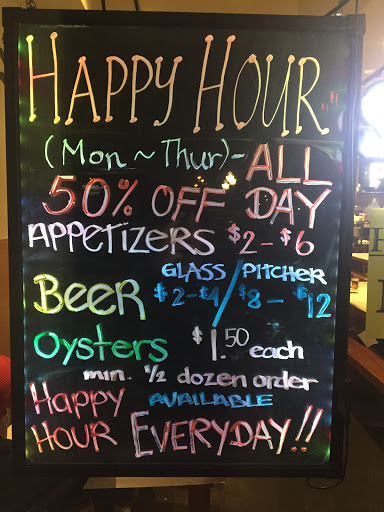 HAPPY HOUR
(Mon ~ Thur) - ALL
50% OFF DAY
APPETIZERS $2 - $6
GLASS / PITCHER
BEER $2-$4 / $8 - $12
OYSTERS $1.50 each
min. 1/2 dozen order
HAPPY AVAILABLE
HOUR EVERYDAY!!